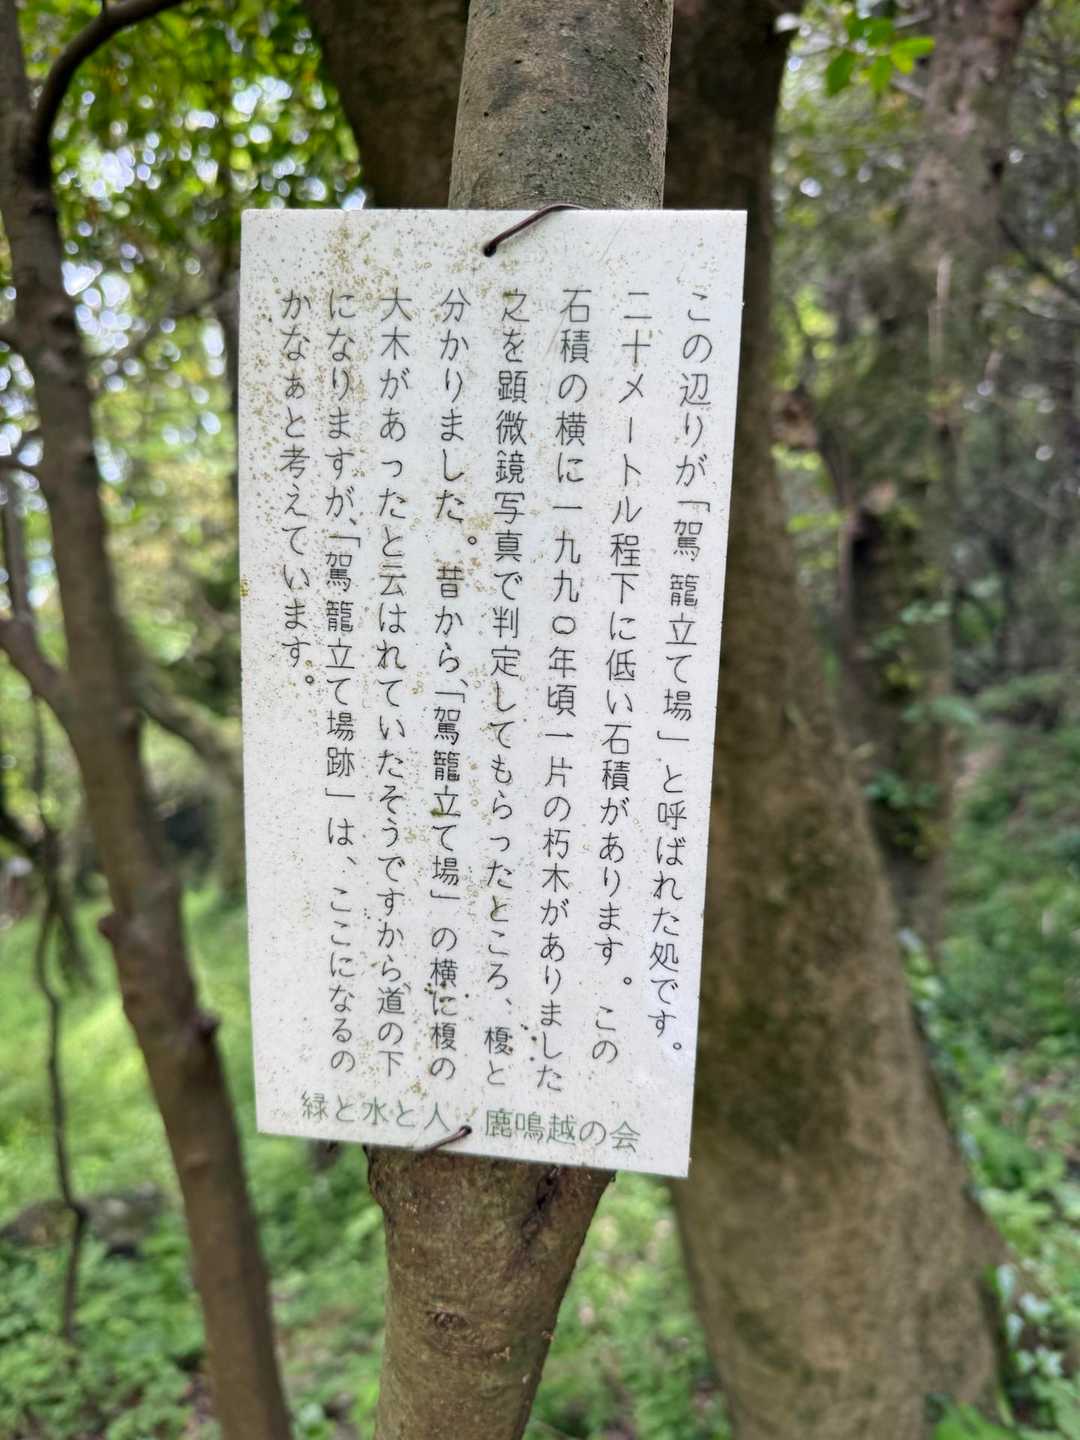 この辺りが「駕籠立て場」と呼ばれた処です。
二十メートル程下に低い石積があります。この
石積の横に一九九〇年頃一片の朽木がありました
之を顕微鏡写真で判定してもらったところ、榎と
分かりました。昔から、「駕籠立て場」の横に榎の
大木があったと云はれていたそうですから道の下
になりますが、「駕籠立て場跡」は、ここになるの
かなぁと考えています。
緑と水と人・鹿鳴越の会